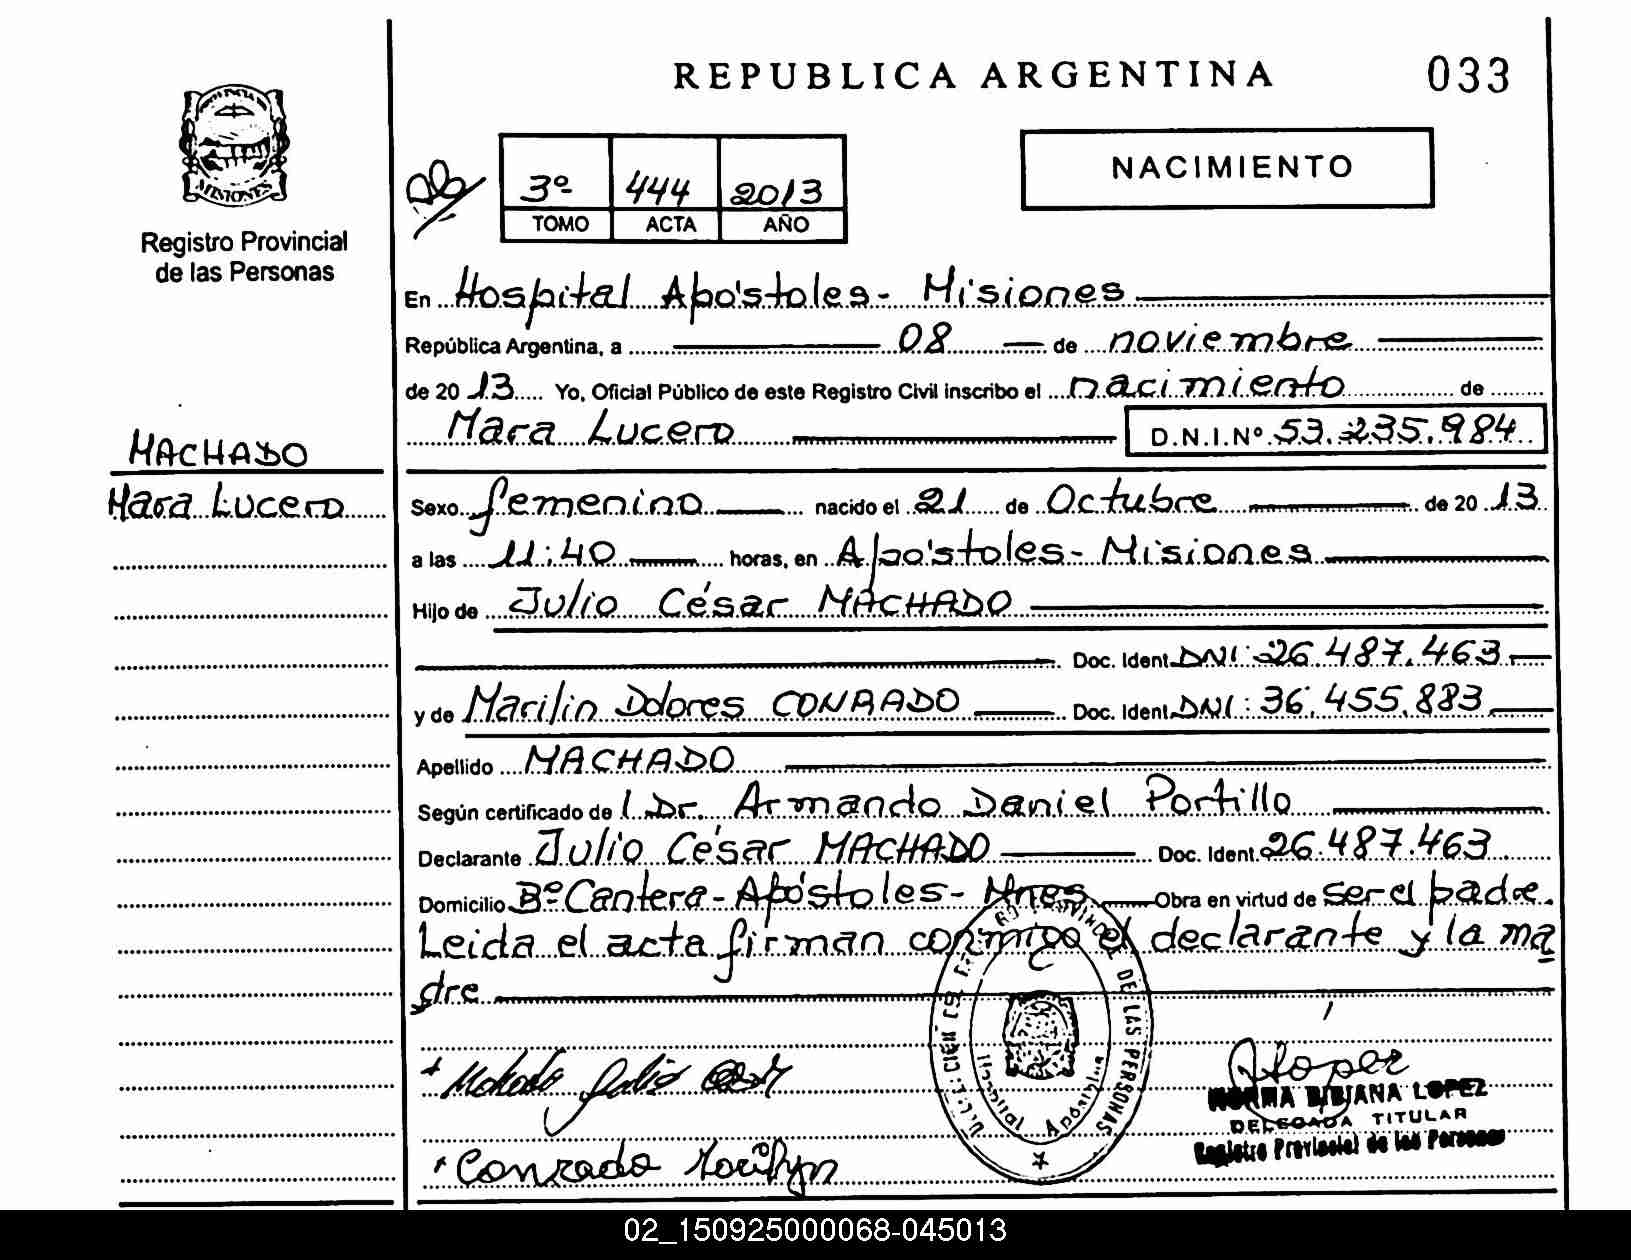 REPUBLICA ARGENTINA 033
MISIONES
Registro Provincial
de las Personas
3º 444 2013
TOMO ACTA AÑO
NACIMIENTO
En Hospital Apóstoles - Misiones
República Argentina, a 08 de noviembre
de 2013 Yo, Oficial Público de este Registro Civil inscribo el nacimiento de
Mara Lucero D.N.I.Nº 53.235.984
MACHADO
Mara Lucero
Sexo femenino nacido el 21 de Octubre de 2013
a las 11:40 horas, en Apóstoles - Misiones
Hijo de Julio César MACHADO
Doc. Ident. DNI: 26.487.463
y de Marilin Dolores CONRADO Doc. Ident. DNI: 36.455.883
Apellido MACHADO
Según certificado de l Dr. Armando Daniel Portillo
Declarante Julio César MACHADO Doc. Ident. 26.487.463
Domicilio Bº Cantera - Apóstoles - Mnes Obra en virtud de ser el padre.
Leida el acta firman conmigo el declarante y la ma
dre
DE LAS PERSONAS
Hospital Apóstoles
Lopez
NORMA BIBIANA LOPEZ
DELEGADA TITULAR
Registro Provincial de las Personas
Conrado Marilyn
02_150925000068-045013